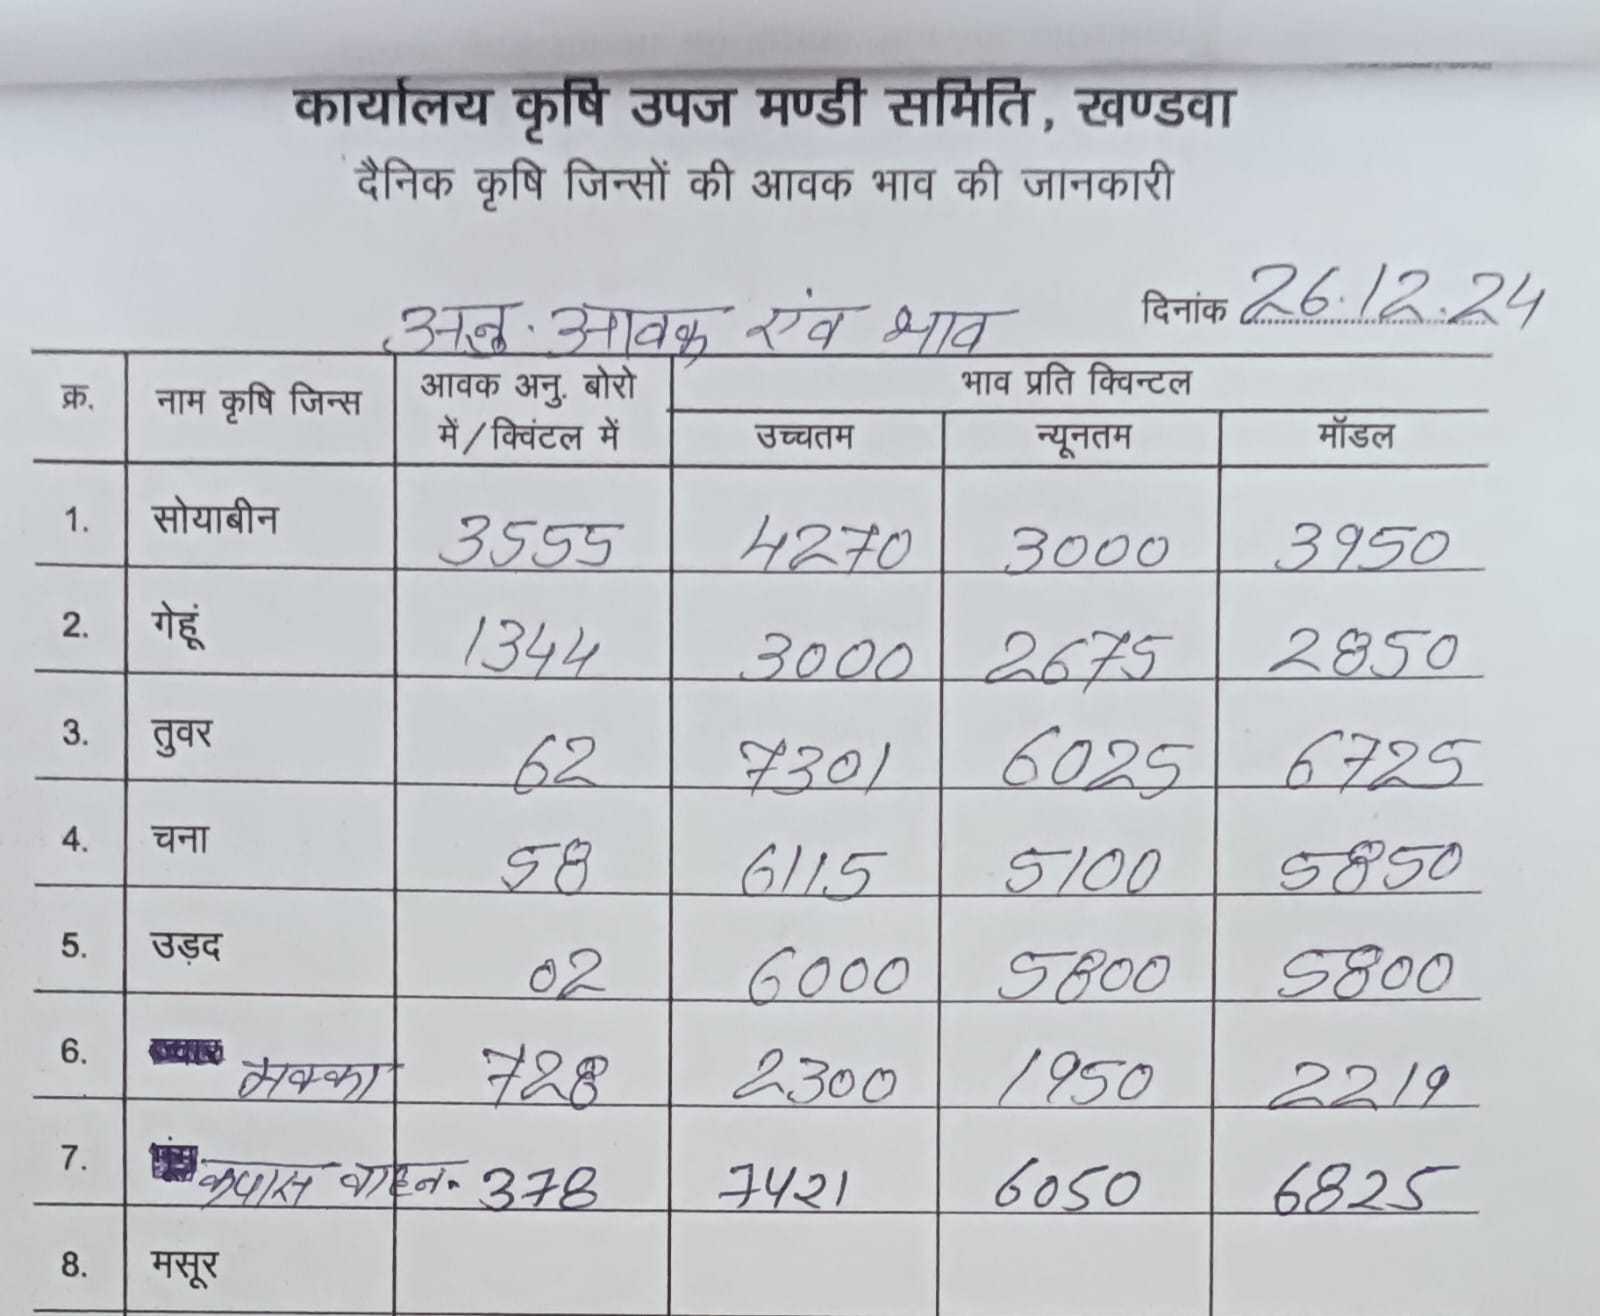 कार्यालय कृषि उपज मण्डी समिति, खण्डवा
दैनिक कृषि जिन्सों की आवक भाव की जानकारी
दिनांक 26.12.24
अनु. आवक एंव भाव
क्र. नाम कृषि जिन्स आवक अनु. बोरो में/क्विंटल में भाव प्रति क्विन्टल
उच्चतम न्यूनतम मॉडल
1. सोयाबीन 3555 4270 3000 3950
2. गेहूं 1344 3000 2675 2850
3. तुवर 62 7301 6025 6725
4. चना 58 6115 5100 5850
5. उड़द 02 6000 5800 5800
6. मक्का 728 2300 1950 2219
7. कपास वाहन. 378 7421 6050 6825
8. मसूर